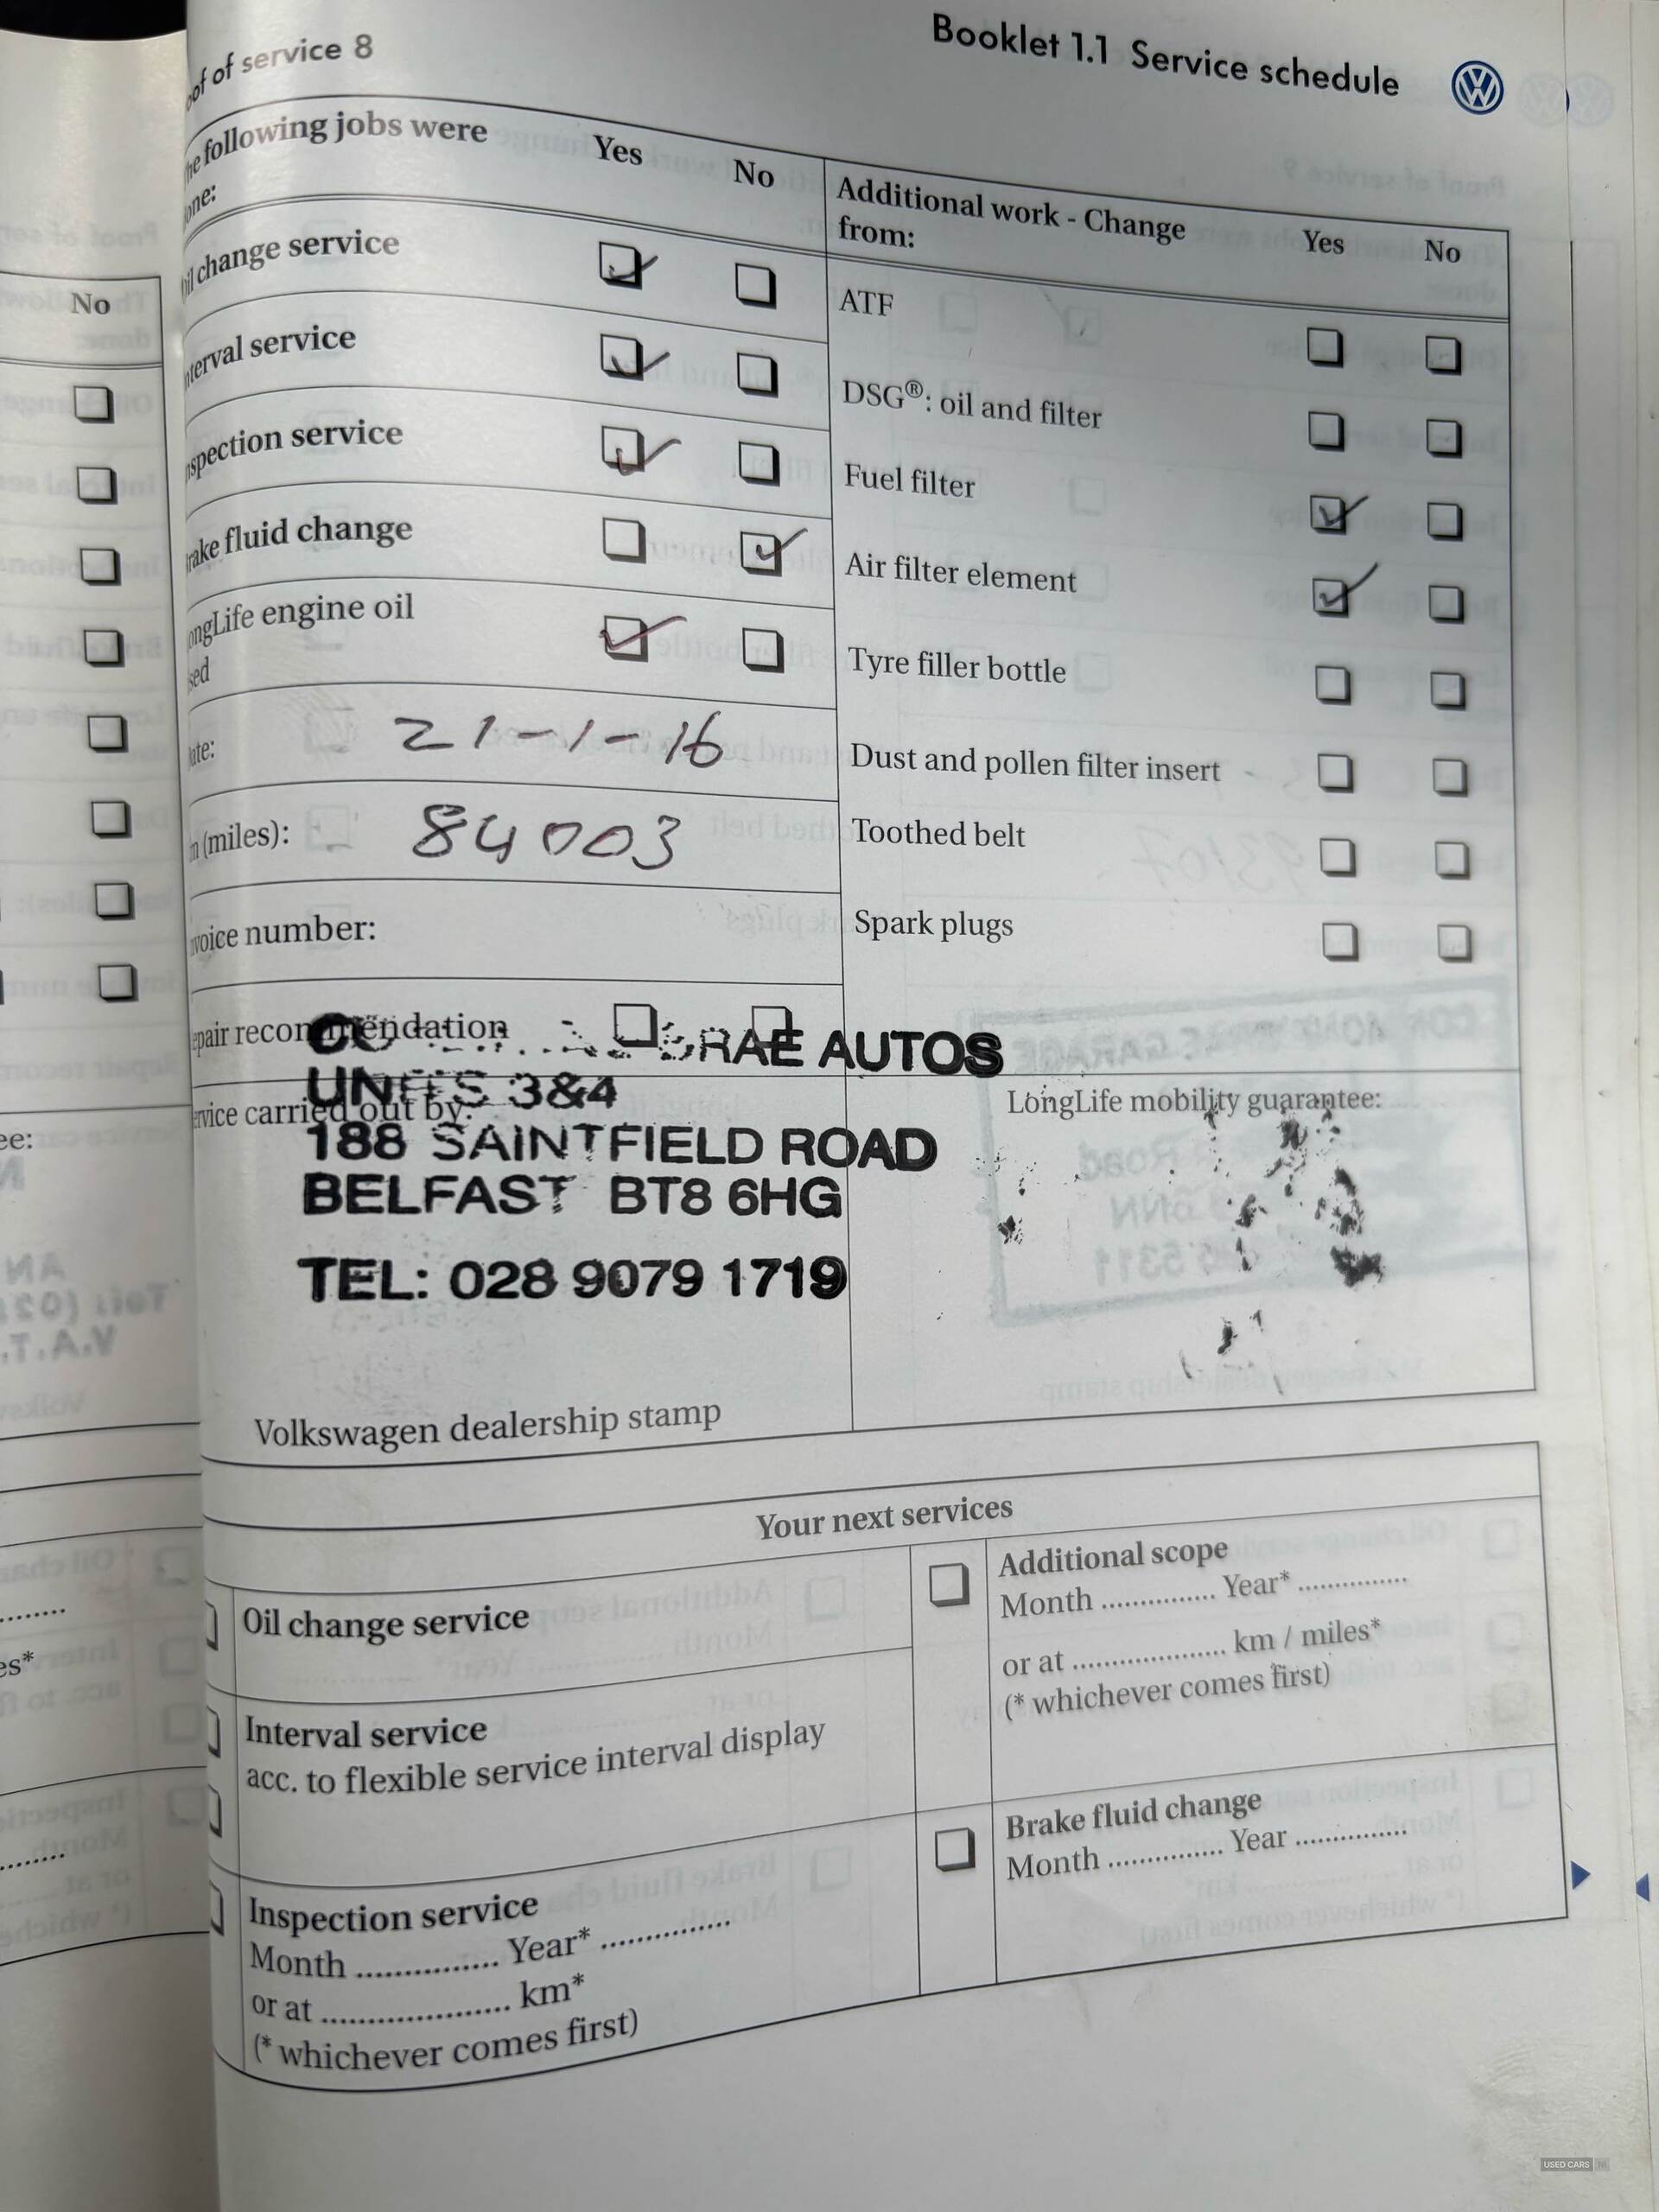 of service 8
Booklet 1.1 Service schedule
following jobs were
Yes
No
Additional work - Change
from:
Yes
No
change service
ATF
service
DSG®: oil and filter
service
Fuel filter
fluid change
Air filter element
engine oil
Tyre filler bottle
21-1-16
Dust and pollen filter insert
(miles):
84003
Toothed belt
number:
Spark plugs
recommendation
AUTOS
UNITS 3&4
carried out by:
LongLife mobility guarantee:
188 SAINTFIELD ROAD
BELFAST BT8 6HG
TEL: 028 9079 1719
Volkswagen dealership stamp
Your next services
Oil change service
Additional scope
Month ............... Year* ...............
or at .................... km / miles*
(* whichever comes first)
Interval service
acc. to flexible service interval display
Brake fluid change
Month ............... Year ...............
Inspection service
Month ............... Year* ...............
or at .................... km*
(* whichever comes first)
No
USED CARS